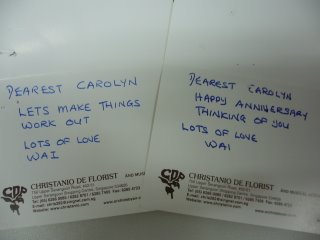 DEAREST CAROLYN
LETS MAKE THINGS
WORK OUT
LOTS OF LOVE
WAI
CDF
CHRISTANIO DE FLORIST
AND MUSI
DEAREST CAROLYN
HAPPY ANNIVERSARY
THINKING OF YOU
LOTS OF LOVE
WAI
CDF
CHRISTANIO DE FLORIST